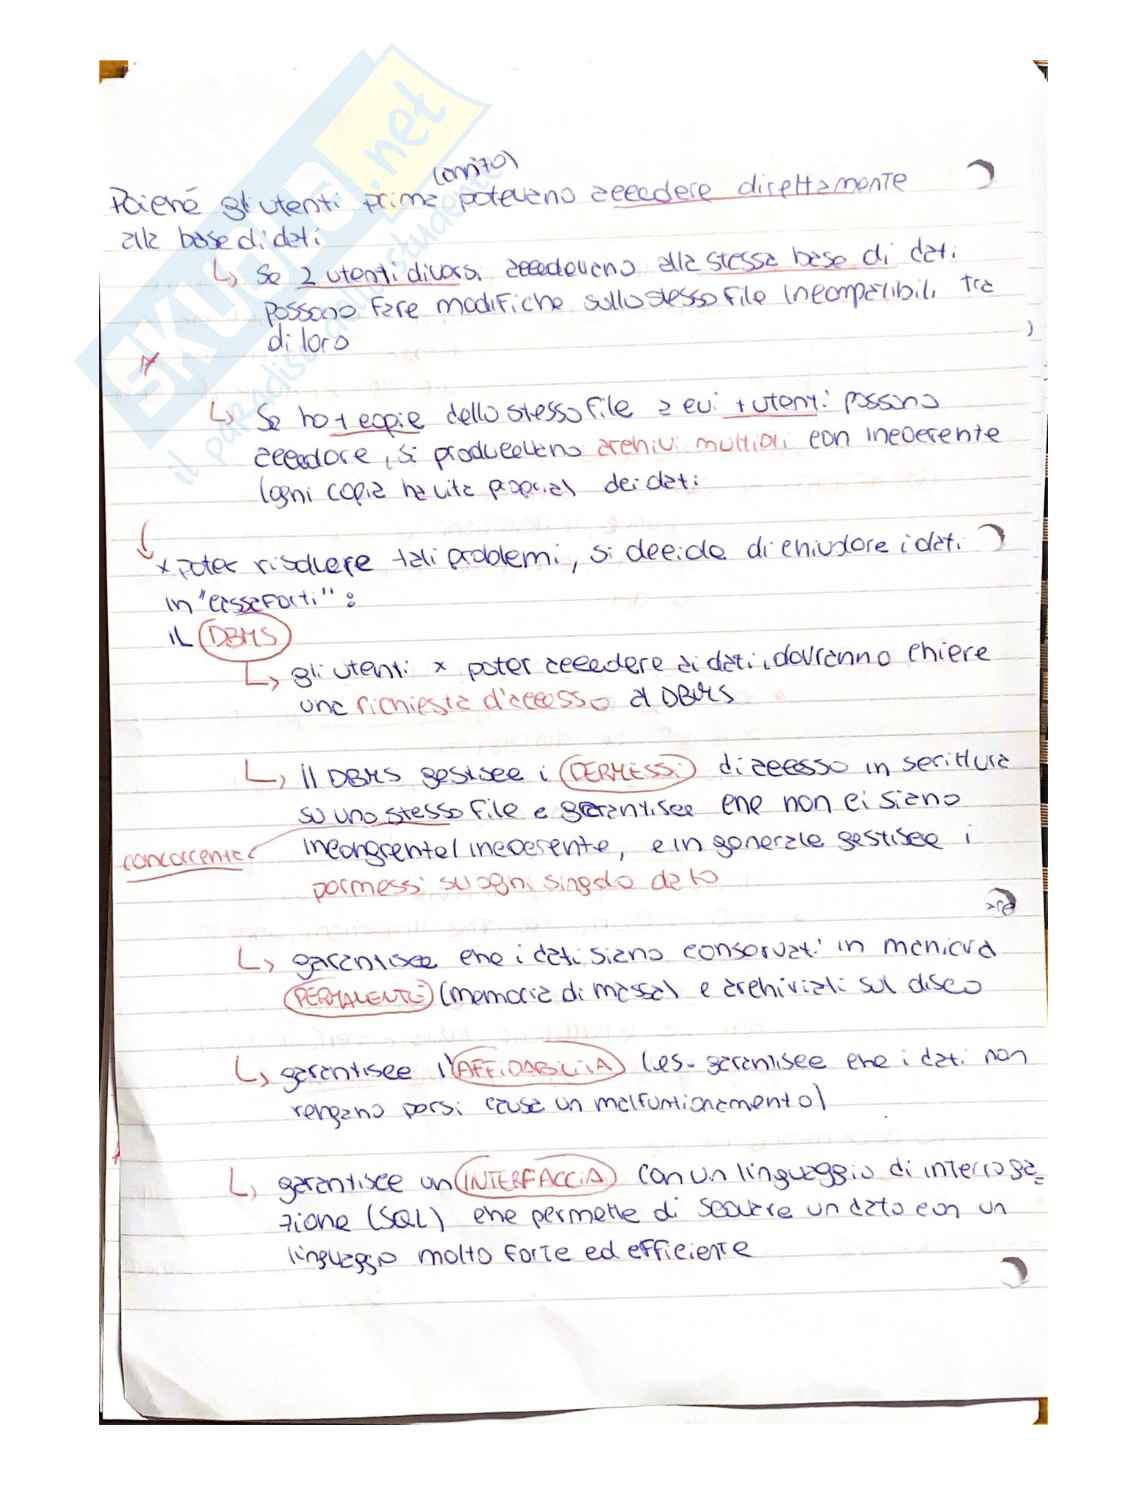 SKUOLA.net
il paradiso dello studente
Poiché gli utenti prima potevano accedere direttamente
alla base di dati
↳ Se 2 utenti diversi accedevano alla stessa base di dati
possono fare modifiche sullo stesso file incompatibili tra
di loro
↳ Se ho + copie dello stesso file a cui + utenti possono
accedere, si producevano archivi multipli con incoerente
(ogni copia ha vita propria) dei dati
x poter risolvere tali problemi, si decide di chiudere i dati
in "casseforti":
il DBMS
↳ gli utenti x poter accedere ai dati, dovranno chiere
una richiesta d'accesso al DBMS
↳ il DBMS gestisce i PERMESSI di accesso in scrittura
su uno stesso file e garantisce che non ci siano
concorrente
incongrente/incoerente, e in generale gestisce i
permessi su ogni singolo dato
↳ garantisce che i dati siano conservati in maniera
PERMANENTE (memoria di massa) e archiviati sul disco
↳ garantisce l'AFFIDABILITÀ (es. garantisce che i dati non
vengano persi causa un malfunzionamento)
↳ garantisce un INTERFACCIA con un linguaggio di interroga=
zione (SQL) che permette di scovare un dato con un
linguaggio molto forte ed efficiente